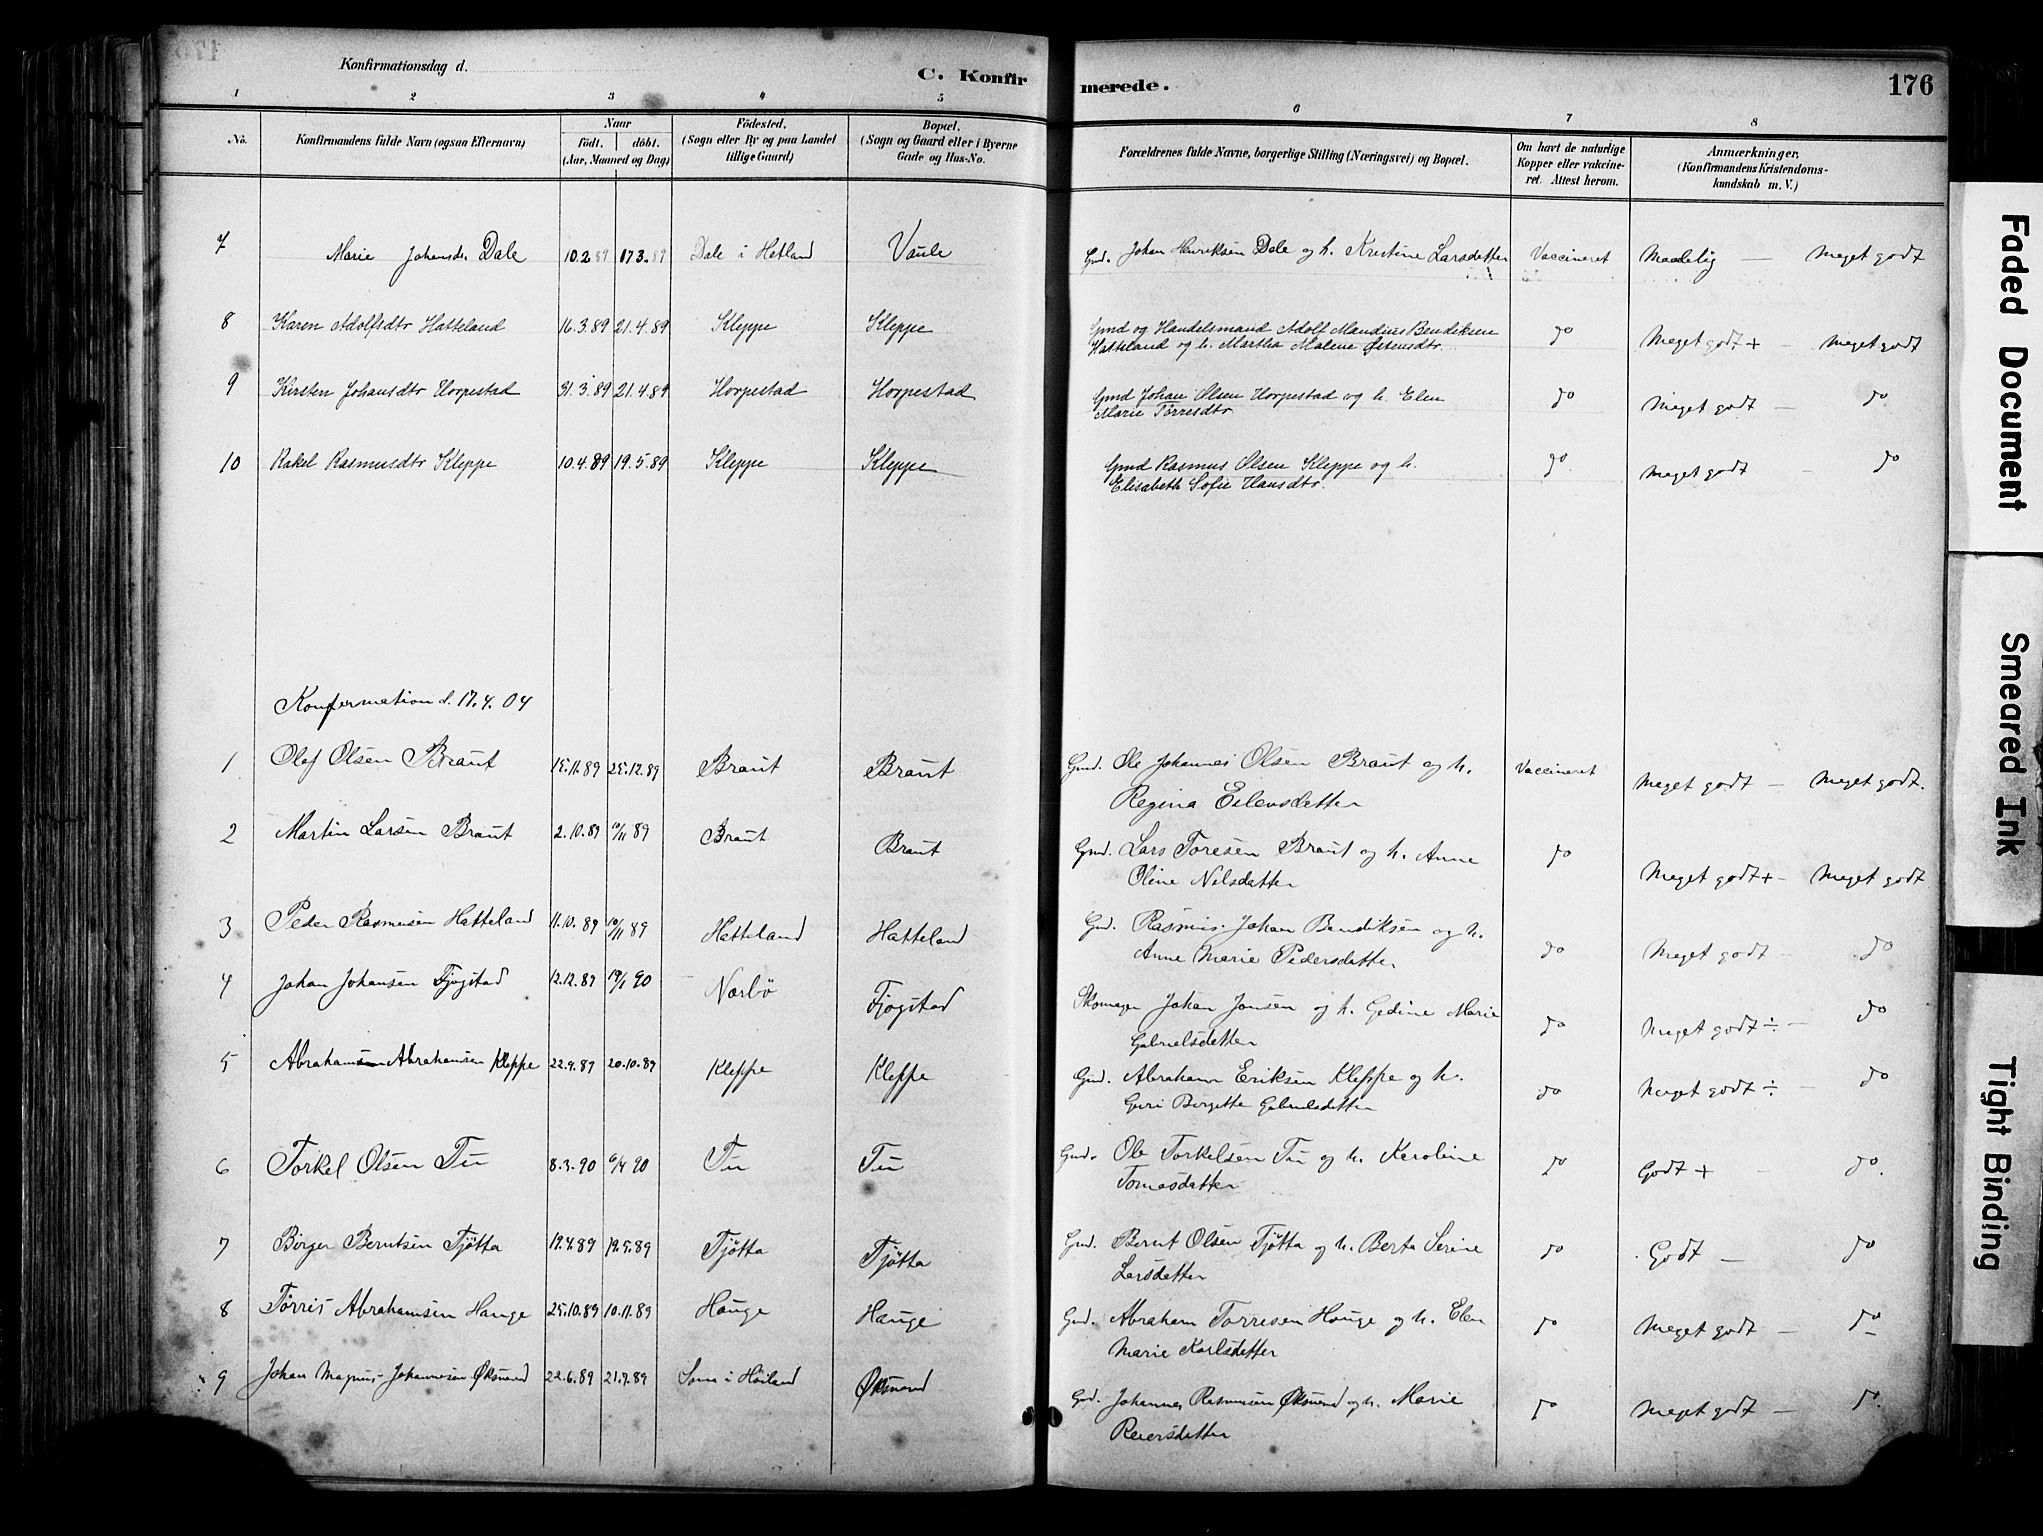 Konfirmationsdag d.
C. Konfirmerede.
176
1 2 3 4 5 6 7 8
No.
Konfirmandens fulde Navn (ogsaa Efternavn)
Naar
født. døbt.
(Aar, Maaned og Dag)
Fødested.
(Sogn eller By og paa Landet
tillige Gaard)
Bopæl.
(Sogn og Gaard eller i Byerne
Gade og Hus-No.
Forældrenes fulde Navne, borgerlige Stilling (Næringsvei) og Bopæl.
Om havt de naturlige
Kopper eller vakcine-
ret. Attest herom.
Anmærkninger,
(Konfirmandens Kristendoms-
kundskab m. V.)
7 Marie Johansdr. Dale 10.2 89 17.3.89 Dale i Hetland Vaule Gmd. Johan Henriksen Dale og h. Kristine Larsdatter Vaccineret Maadelig — Meget godt
8 Karen Adolfsdtr Hatteland 16.3.89 21.4.89 Kleppe Kleppe Gmd og Handelsmand Adolf Mandius Bendiksen
Hatteland og h. Martha Malene Østensdtr. do Meget godt + — Meget godt
9 Kirsten Johansdtr Horpestad 31.3.89 21.4.89 Horpestad Horpestad Gmd Johan Olsen Horpestad og h. Elen
Marie Tørresdtr. do Meget godt — do
10 Rakel Rasmusdtr Kleppe 10.4.89 19.5.89 Kleppe Kleppe Gmd Rasmus Olsen Kleppe og h.
Elisabeth Sofie Hansdtr. do Meget godt — do
Konfermation d. 17.4.04
1 Olaf Olsen Braut 15.11.89 25.12.89 Braut Braut Gmd. Ole Johannes Olsen Braut og h.
Regina Eilensdatter Vaccineret Meget godt — Meget godt.
2 Martin Larsen Braut 2.10.89 10/11 89 Braut Braut Gmd. Lars Toresen Braut og h. Anne
Oline Nilsdatter do Meget godt + — Meget godt
3 Peder Rasmusen Hatteland 11.10.89 10/11 89 Hatteland Hatteland Gmd. Rasmus Johan Bendiksen og h.
Anne Marie Pedersdatter do Meget godt — do
4 Johan Johansen Fjogstad 12.12.89 19/1 90 Nærbö Fjogstad Skomager Johan Jonsen og h. Gedine Marie
Gabrielsdatter do Meget godt ÷ — do
5 Abraham Abrahamsen Kleppe 22.9.89 20.10.89 Kleppe Kleppe Gmd. Abraham Eriksen Kleppe og h.
Guri Birgette Gabrielsdatter do Meget godt ÷ — do
6 Torkel Olsen Tu 8.3.90 6/4 90 Tu Tu Gmd. Ole Torkelsen Tu og h. Karoline
Tomasdatter do Godt + — do.
7 Birger Berntsen Tjøtta 19.4.89 19.5.89 Tjøtta Tjøtta Gmd. Bernt Olsen Tjøtta og h. Berta Serine
Larsdatter do Godt — do
8 Tørris Abrahamsen Hauge 25.10.89 10.11.89 Hauge Hauge Gmd. Abraham Tørresen Hauge og h. Elen
Marie Karlsdatter do Meget godt — do
9 Johan Magnus Johannesen Øksnevad 22.6.89 21.7.89 Soma i Høiland Øksnevad Gmd. Johannes Rasmusen Øksnevad og h. Marie
Reiersdatter do Meget godt — do.
Faded Document
Smeared Ink
Tight Binding